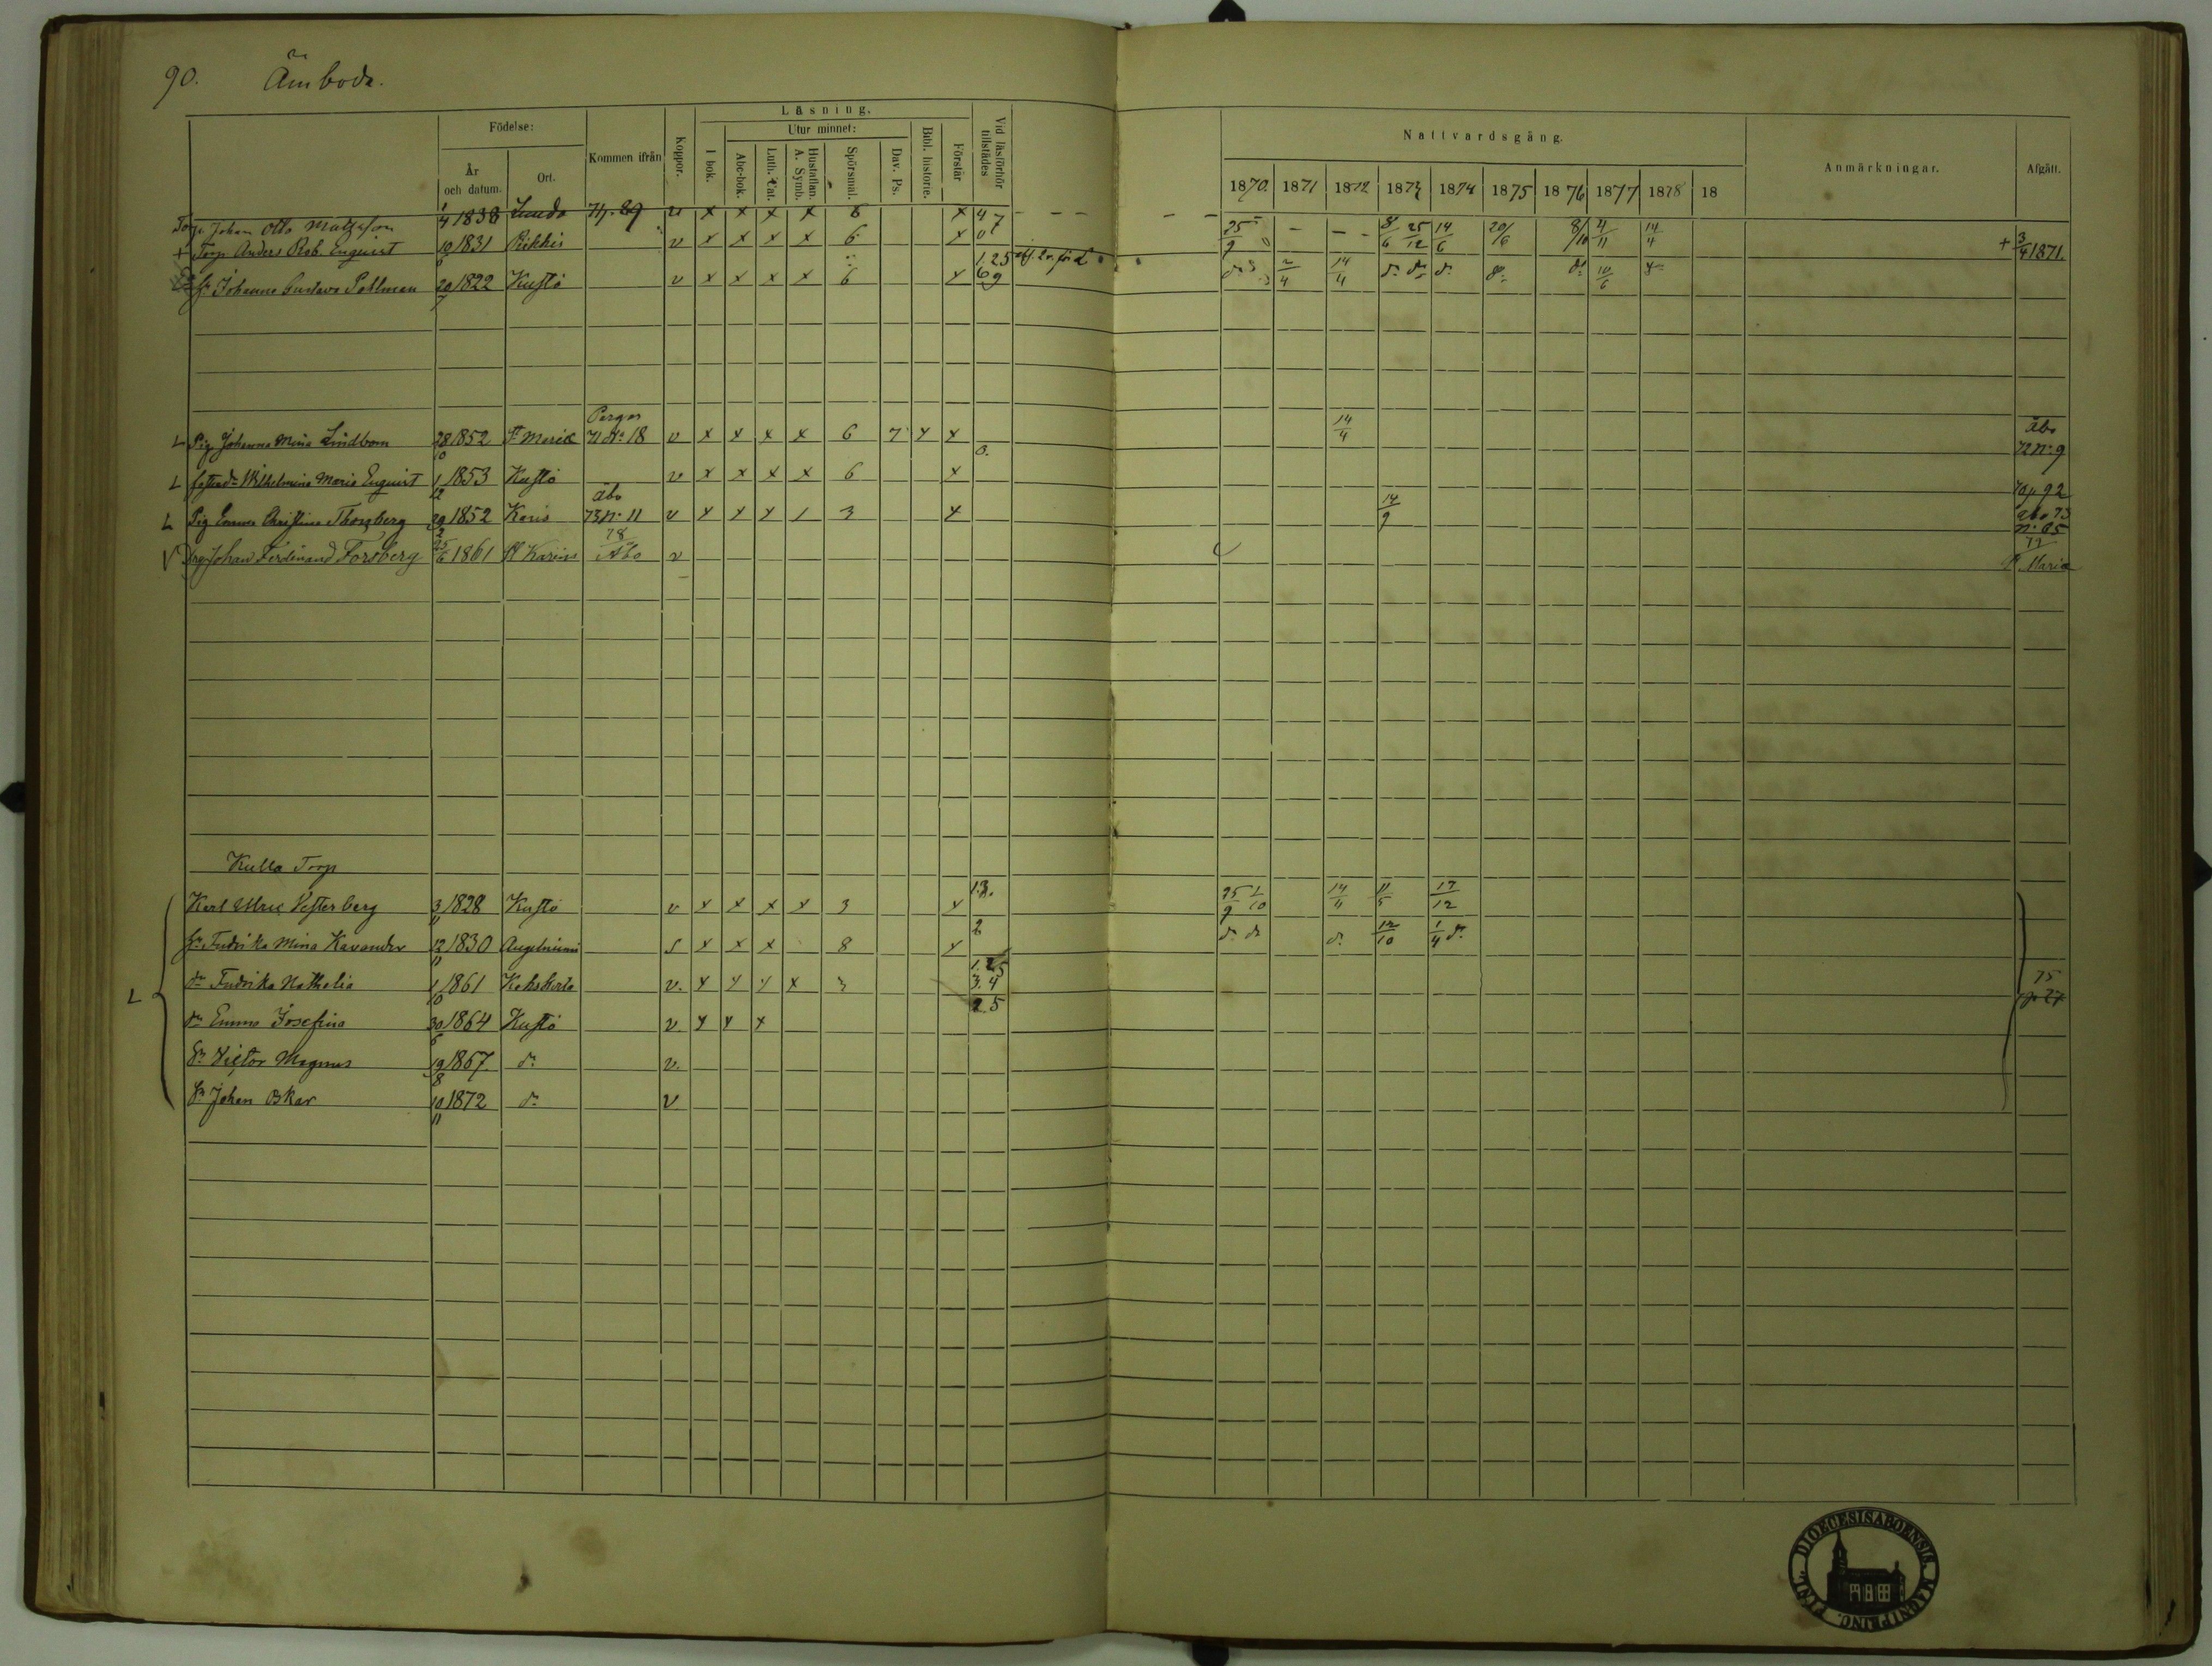 90. Ämboda.
Födelse: Kommen ifrån Koppor. Läsning. Vid läsförhör tillstädes Nattvardsgång. Anmärkningar. Afgått.
År och datum. Ort. I bok. Utur minnet: Abc-bok. Luth. Cat. Hustaflan. A. Symb. Spörsmål. Dav. Ps. Bibl. historie. Förstår
1870. 1871 1872 1873 1874 1875 1876 1877 1878 18
Torp. Johan Otto Mattsson 1/4 1838 Lundo 71p.89 v x x x x 6 x 4 7
+ Torp Anders Rob. Enquist 1831 Rikkis v x x x x 6 x 0 25/9 - - - 8/6 25/12 14/6 20/6 8/10 4/11 14/4 + 3/4 1871.
Johanna Gustava Pollman 20/7 1822 Kustö v x x x x 6 x 69 2/4 14/4 dº dº dº dº dº 10/6
L Pig. Johanna Mina Lindbom 28/10 1852 St Marie Pargas 71 Nº 18 v x x x x 6 7 x x 14/4 Åbo 72 Nº 9
L Wilhelmina Maria Enquist 1/12 1853 Kustö v x x x x 6 0. x 70p 92
L Pig Emma Christina Thorsberg 29/2 1852 Karis Åbo 73 Nº 11 v x x x / 3 x 14/9 Åbo 73 Nº 65
V Johan Ferdinand Forsberg 25/6 1861 St Karins 78 Åbo v St. Maria
Kulla Torp
Karl Ulric Vesterberg 3/11 1828 Kustö v x x x x 3 x 1.3. 25/9 1/10 14/4 11/5 17/12
Hu. Fredrika Mina Kavander 12/11 1830 Angelniemi s x x x 8 x 2 dº dº dº 12/10 1/4 dº
L dr Fredrika Nathalia 1/10 1861 Kakskerta v. x x x x 3 3.4 75
dr Emma Josefina 30/6 1864 Kustö v x x x 2.5
Sn Victor Magnus 19/8 1867 dº v.
Sn Johan Oskar 10/11 1872 dº v
DIOECESIS ABOENSIS. MAGNI PRINC. FINL.